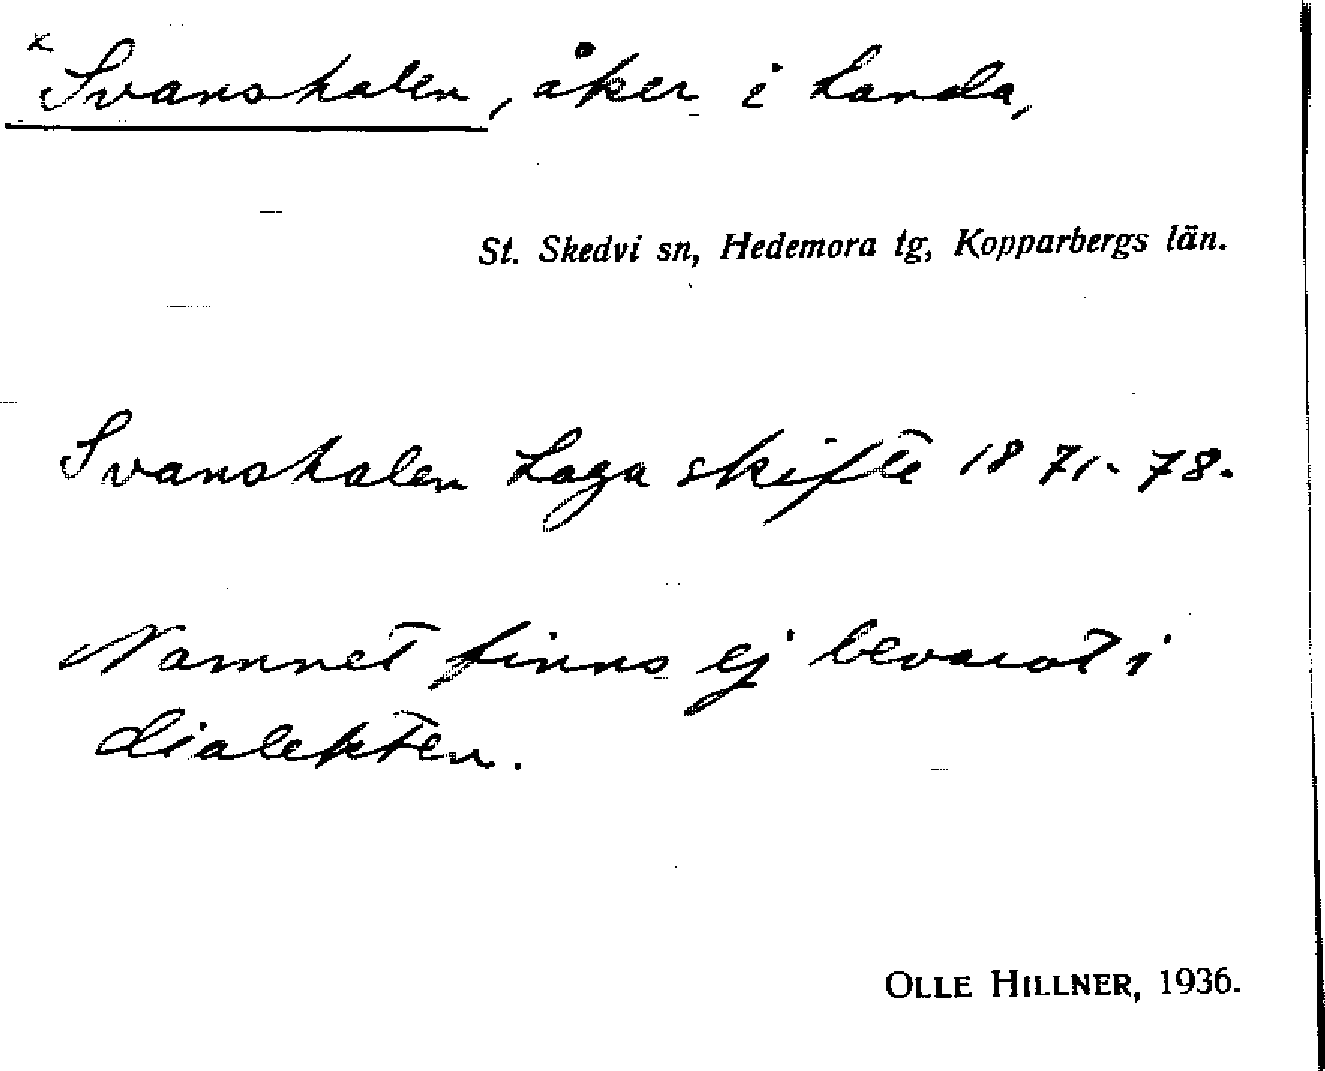 x Svanshalen, åker i Landa,
St. Skedvi sn, Hedemora tg, Kopparbergs län.
Svanshalen Laga skifte 1871-78.
Namnet finns ej bevarat i
dialekten.
OLLE HILLNER, 1936.